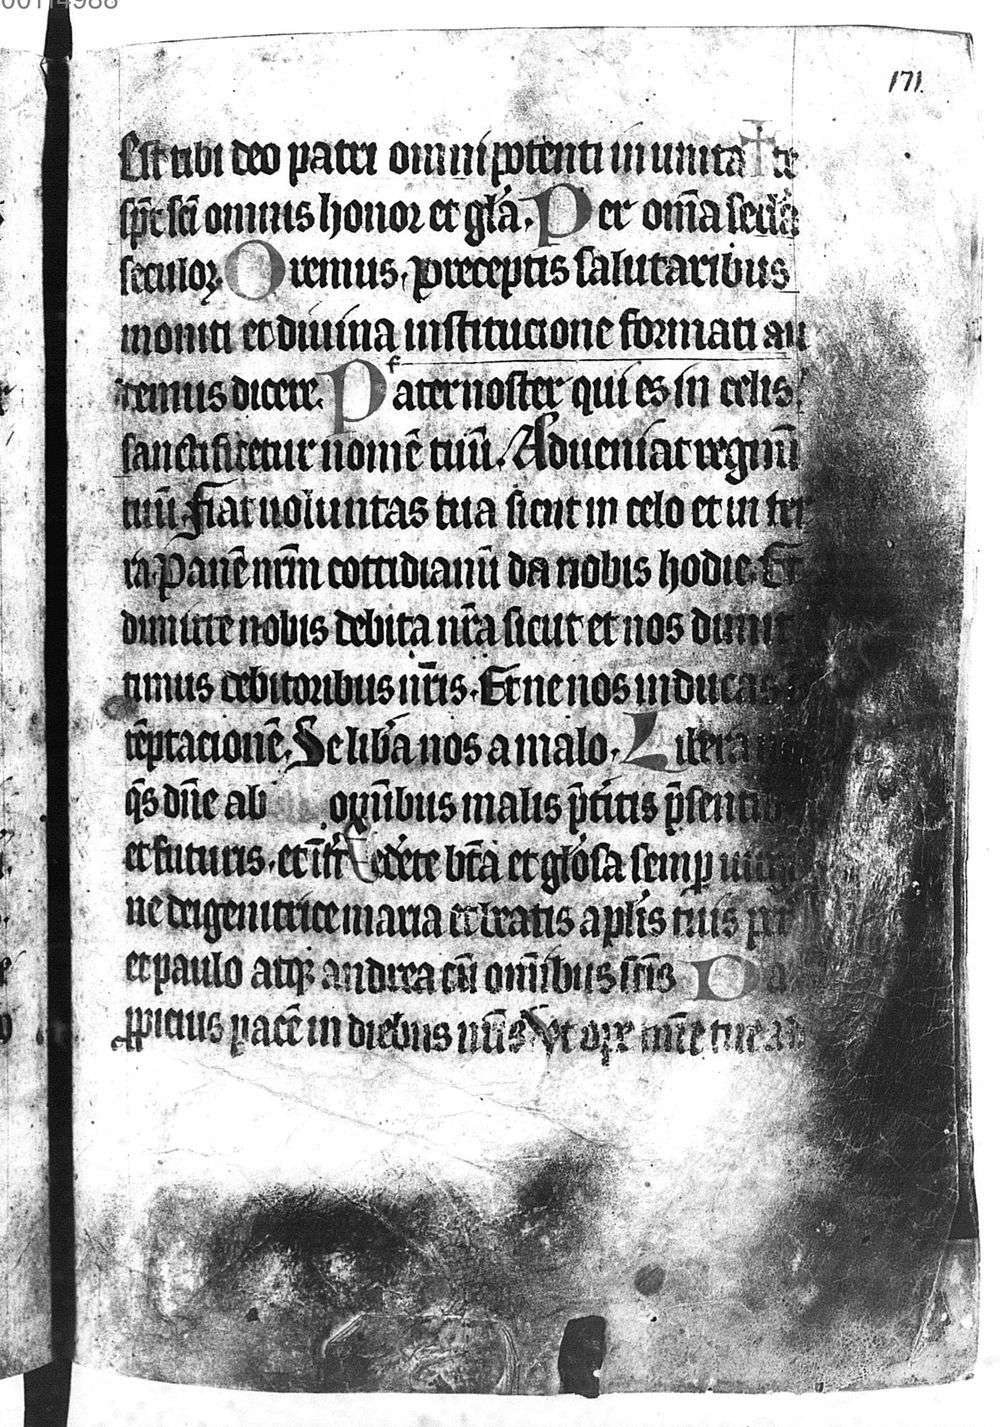 00114988
171.
Est tibi deo patri omnipotenti in unita✝te
sp̄c sc̄i omnis honor et gl̄a. Per om̄a secl̄a
seculoꝝ. Oremus. preceptis salutaribus
moniti et divina institucione formati au
temus dicere. Pater noster qui es in celis.
sanctificetur nomē tuū. Adveniat regnū
tuū. Fiat voluntas tua sicut in celo et in ter
ra. Panē nr̄m cottidianū da nobis hodie. Et
dimitte nobis debita nr̄a sicut et nos dimit
timus debitoribus nr̄is. Et ne nos inducas
tēptacionē. Se lib̄a nos a malo. Libera
q̄s dn̄e ab omībus malis p̄titis p̄senti
et futuris. et īt̄cedēte bt̄a et gl̄osa semꝑ
ne deigenitrice maria et beatis apl̄is tuis
et paulo atqꝫ andrea cū omībus sc̄is Da
ꝓpicius pacē in diebus nr̄is Vt ope